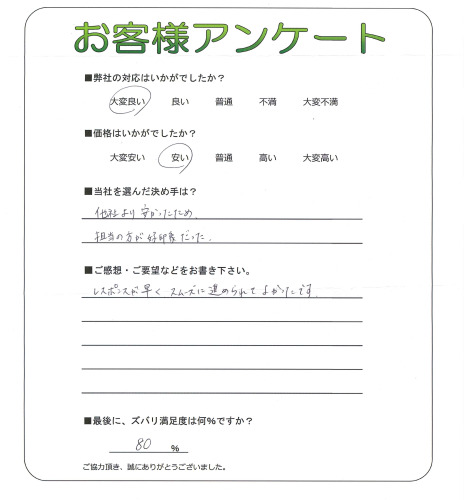 お客様アンケート
■弊社の対応はいかがでしたか？
大変良い 良い 普通 不満 大変不満
■価格はいかがでしたか？
大変安い 安い 普通 高い 大変高い
■当社を選んだ決め手は？
他社より安かったため
担当の方が好印象だった。
■ご感想・ご要望などをお書き下さい。
レスポンスが早くスムーズに進められてよかったです。
■最後に、ズバリ満足度は何％ですか？
80 ％
ご協力頂き、誠にありがとうございました。